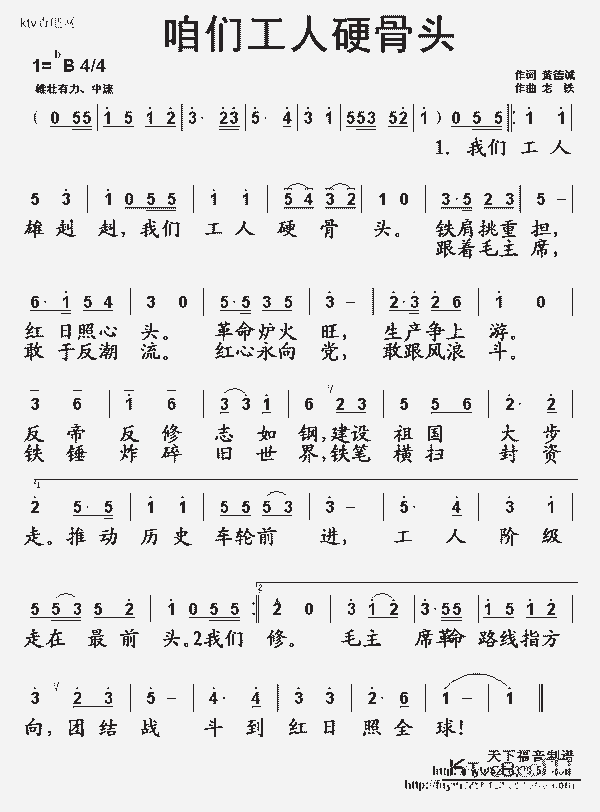 咱们工人硬骨头
1=♭B 4/4
雄壮有力、中速
作词 黄德诚
作曲 老 铁
(0 55 | 1 5 1 2 | 3· 23 | 5· 4 | 3 1 | 553 52 | 1) 0 55 |: 1 1 |
1. 我们 工 人
5 3· | 1 0 5 5 | 1 1 | 5 4 3 2 | 1 0 | 3·5 2 3 | 5 – |
雄 赳 赳，我们 工 人 硬 骨 头。 铁肩挑重 担，
跟着毛主 席，
6· 1 5 4 | 3 0 | 5·5 3 5 | 3 – | 2·3 2 6 | 1 0 |
红 日照心 头。 革命炉火 旺， 生产争上 游。
敢 于反潮 流。 红心永向 党， 敢跟风浪 斗。
3 6 | 1 6 | 3 3 1 | 6 2 3 | 5 5 6 | 2· 2 |
反 帝 反 修 志 如 钢，建设 祖 国 大 步
铁 锤 炸 碎 旧 世 界，铁笔 横 扫 封 资
1
2 5· 5 | 1 1 | 5 5 5 3 | 3 – | 5· 4 | 3 1 |
走。推动 历 史 车轮前 进， 工 人 阶 级
2
5 5 3 5 2 | 1 0 5 5 :| 2 0 | 3 1 2 | 3·55 | 5 5 1 2 |
走在 最 前 头。2我们 修。 毛 主 席革命 路线指方
3 2 3 | 5 – | 4· 4 | 3 3 | 2· 6 | 1 – | 1 ‖
向，团 结 战 斗 到 红 日 照 全 球！
天下福音制谱